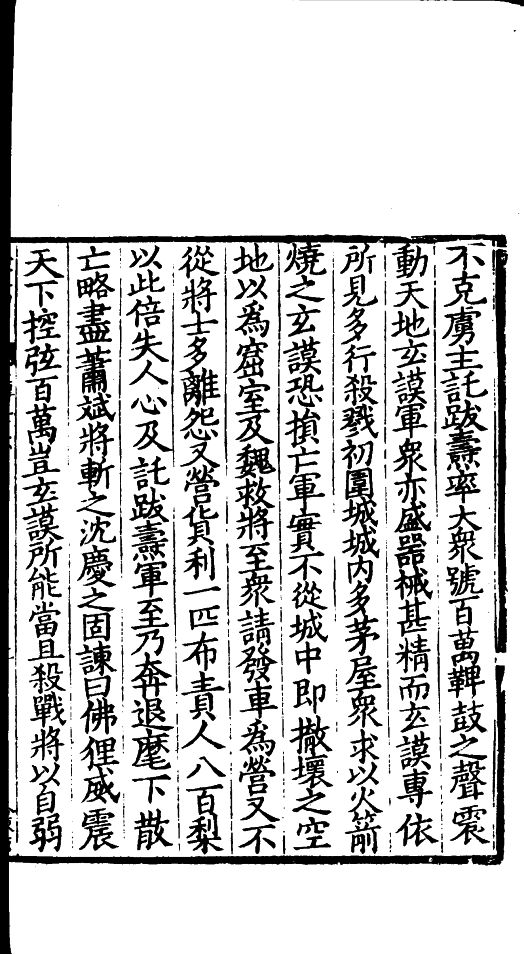 不克虜主託跋燾率大衆號百萬鞞鼓之聲震
動天地玄謨軍衆亦盛器械甚精而玄謨專依
所見多行殺戮初圍城城内多茅屋衆求以火箭
燒之玄謨恐損亡軍實不從城中即撤壞之空
地以爲窟室及魏救將至衆請發車爲營又不
從將士多離怨又營貨利一匹布責人八百梨
以此倍失人心及託跋燾軍至乃奔退麾下散
亡略盡蕭斌將斬之沈慶之固諫曰佛狸威震
天下控弦百萬豈玄謨所能當且殺戰將以自弱